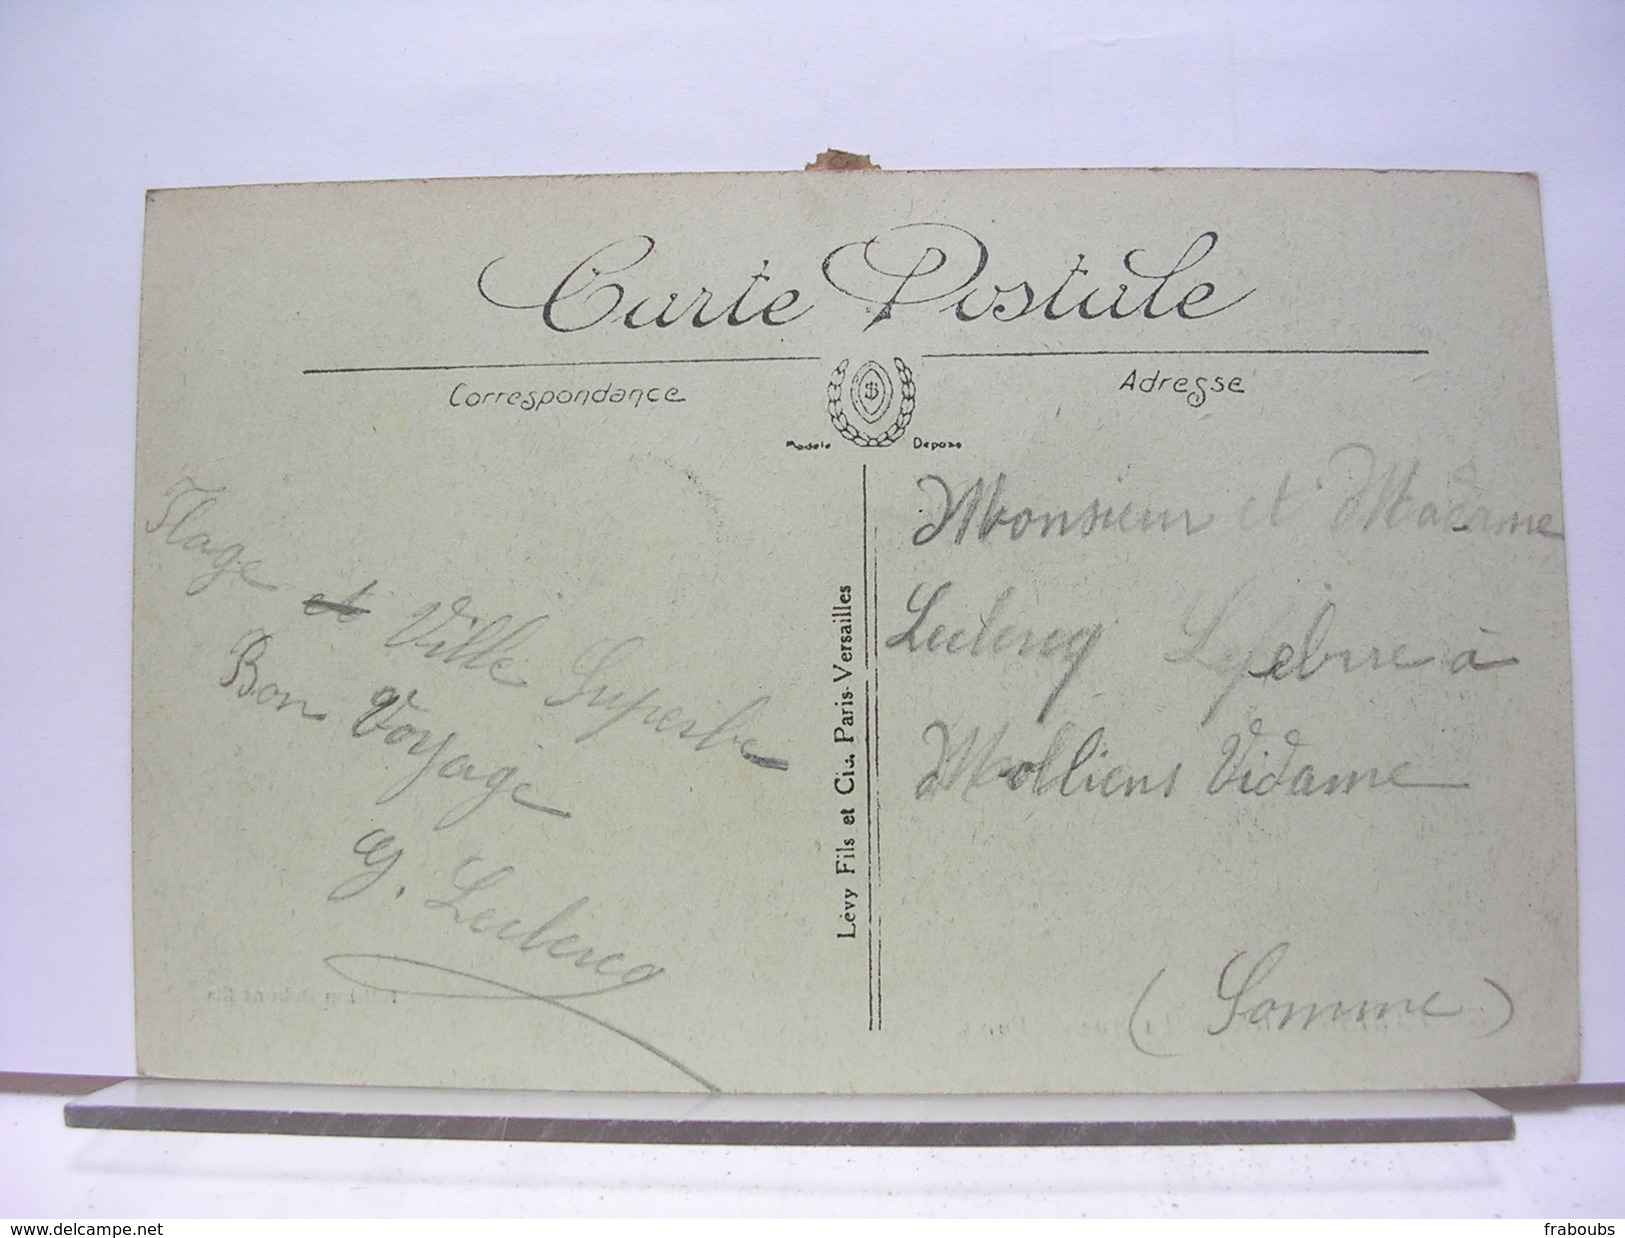 Carte Postale
Correspondance
Adresse
Modèle Déposé
Plage et Ville Superbe
Bon Voyage
G. Leclercq
Lévy Fils et Cie, Paris-Versailles
Monsieur et Madame
Leclercq Lefebvre à
Molliens Vidame
(Somme)
www.delcampe.net
fraboubs